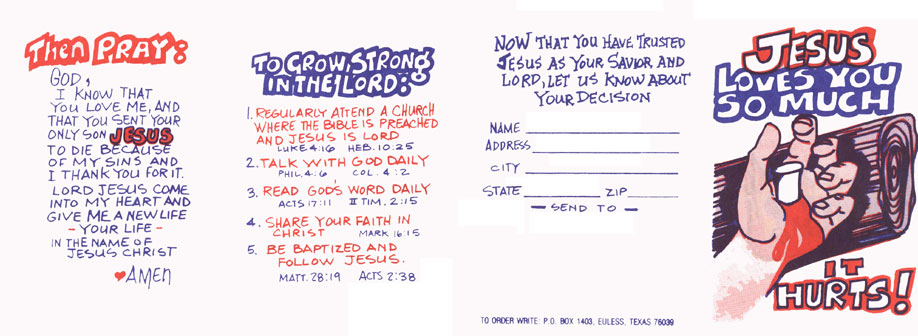 Then PRAY:
GOD,
I KNOW THAT
YOU LOVE ME, AND
THAT YOU SENT YOUR
ONLY SON JESUS
TO DIE BECAUSE
OF MY SINS AND
I THANK YOU FOR IT.
LORD JESUS COME
INTO MY HEART AND
GIVE ME A NEW LIFE
- YOUR LIFE -
IN THE NAME OF
JESUS CHRIST
AMEN
TO GROW STRONG
IN THE LORD:
1. REGULARLY ATTEND A CHURCH
WHERE THE BIBLE IS PREACHED
AND JESUS IS LORD
LUKE 4:16 HEB. 10:25
2. TALK WITH GOD DAILY
PHIL. 4:6 COL. 4:2
3. READ GOD'S WORD DAILY
ACTS 17:11 II TIM. 2:15
4. SHARE YOUR FAITH IN
CHRIST MARK 16:15
5. BE BAPTIZED AND
FOLLOW JESUS.
MATT. 28:19 ACTS 2:38
NOW THAT YOU HAVE TRUSTED
JESUS AS YOUR SAVIOR AND
LORD, LET US KNOW ABOUT
YOUR DECISION
NAME
ADDRESS
CITY
STATE ZIP
- SEND TO -
TO ORDER WRITE: P.O. BOX 1403, EULESS, TEXAS 76039
JESUS
LOVES YOU
SO MUCH
IT
HURTS!